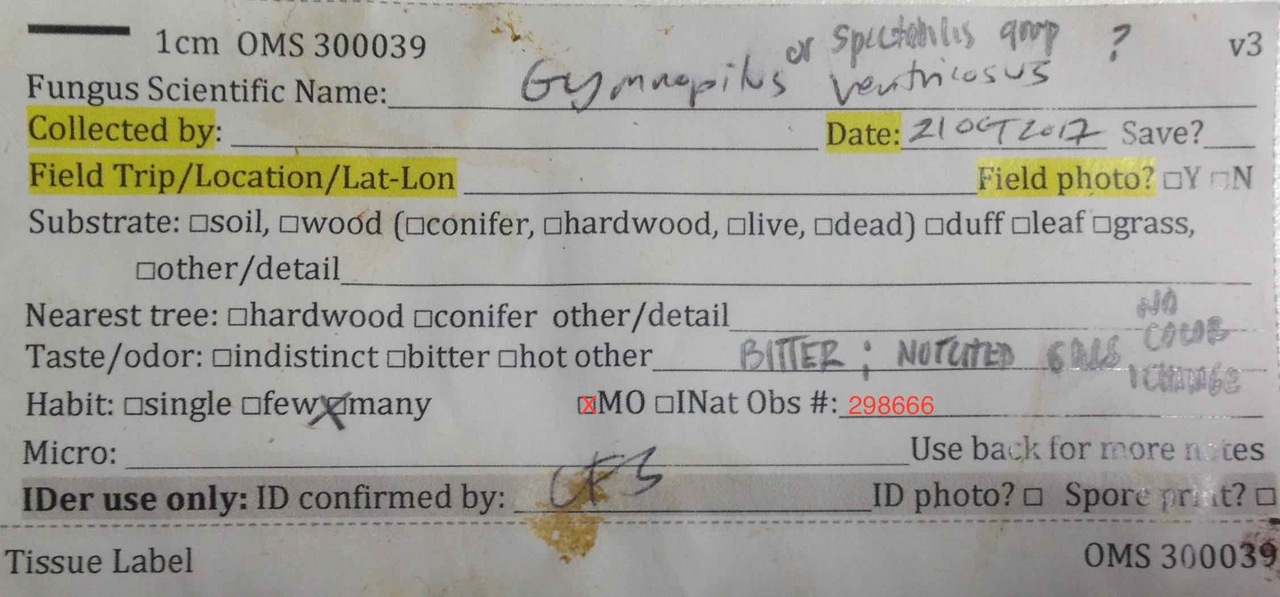 1cm OMS 300039 or spectabilis group ? v3
Fungus Scientific Name: Gymnopilus ventricosus
Collected by: Date: 21 OCT 2017 Save?
Field Trip/Location/Lat-Lon Field photo? □Y □N
Substrate: □soil, □wood (□conifer, □hardwood, □live, □dead) □duff □leaf □grass,
□other/detail
Nearest tree: □hardwood □conifer other/detail NO
Taste/odor: □indistinct □bitter □hot other BITTER; NOTCHED GILLS COLOR
CHANGE
Habit: □single □few ☒many ☒MO □INat Obs #: 298666
Micro: Use back for more notes
IDer use only: ID confirmed by: ID photo? □ Spore print? □
Tissue Label OMS 300039